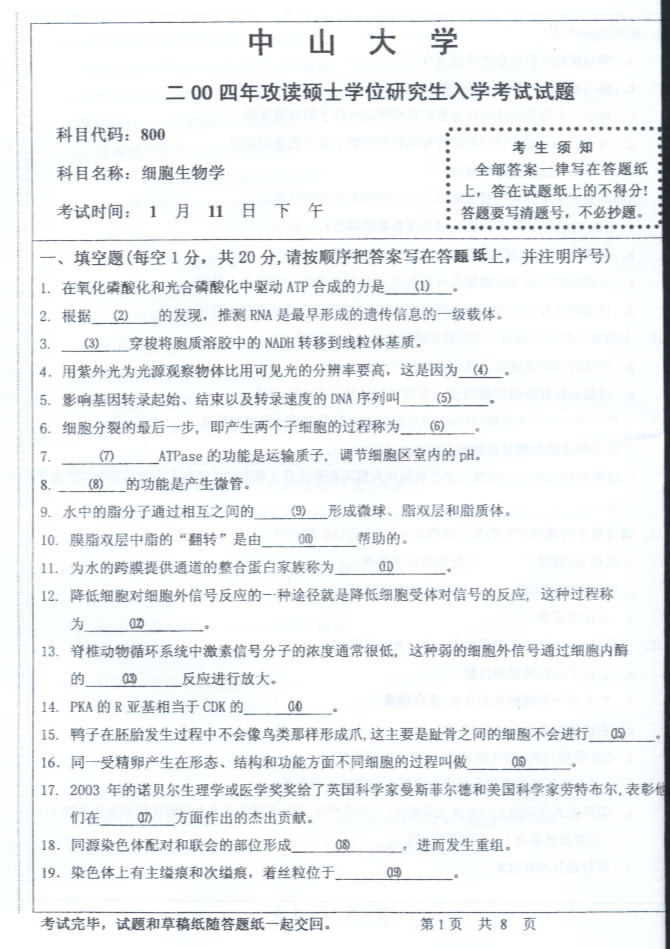 中 山 大 学
二00四年攻读硕士学位研究生入学考试试题
科目代码：800
科目名称：细胞生物学
考试时间： 1 月 11 日 下 午
考 生 须 知
全部答案一律写在答题纸
上，答在试题纸上的不得分！
答题要写清题号，不必抄题。
一、填空题(每空1分，共20分,请按顺序把答案写在答题纸上，并注明序号)
1. 在氧化磷酸化和光合磷酸化中驱动ATP合成的力是 ⑴ 。
2. 根据 ⑵ 的发现，推测RNA是最早形成的遗传信息的一级载体。
3. ⑶ 穿梭将胞质溶胶中的NADH转移到线粒体基质。
4. 用紫外光为光源观察物体比用可见光的分辨率要高，这是因为 ⑷ 。
5. 影响基因转录起始、结束以及转录速度的DNA序列叫 ⑸ 。
6. 细胞分裂的最后一步，即产生两个子细胞的过程称为 ⑹ 。
7. ⑺ ATPase的功能是运输质子，调节细胞区室内的pH。
8. ⑻ 的功能是产生微管。
9. 水中的脂分子通过相互之间的 ⑼ 形成微球、脂双层和脂质体。
10. 膜脂双层中脂的“翻转”是由 ⑽ 帮助的。
11. 为水的跨膜提供通道的整合蛋白家族称为 ⑾ 。
12. 降低细胞对细胞外信号反应的一种途径就是降低细胞受体对信号的反应，这种过程称
为 ⑿ 。
13. 脊椎动物循环系统中激素信号分子的浓度通常很低，这种弱的细胞外信号通过细胞内酶
的 ⒀ 反应进行放大。
14. PKA的R亚基相当于CDK的 ⒁ 。
15. 鸭子在胚胎发生过程中不会像鸟类那样形成爪,这主要是趾骨之间的细胞不会进行 ⒂ 。
16. 同一受精卵产生在形态、结构和功能方面不同细胞的过程叫做 ⒃ 。
17. 2003 年的诺贝尔生理学或医学奖奖给了英国科学家曼斯菲尔德和美国科学家劳特布尔,表彰他
们在 ⒄ 方面作出的杰出贡献。
18. 同源染色体配对和联会的部位形成 ⒅ ，进而发生重组。
19. 染色体上有主缢痕和次缢痕，着丝粒位于 ⒆ 。
考试完毕，试题和草稿纸随答题纸一起交回。 第1页 共 8 页